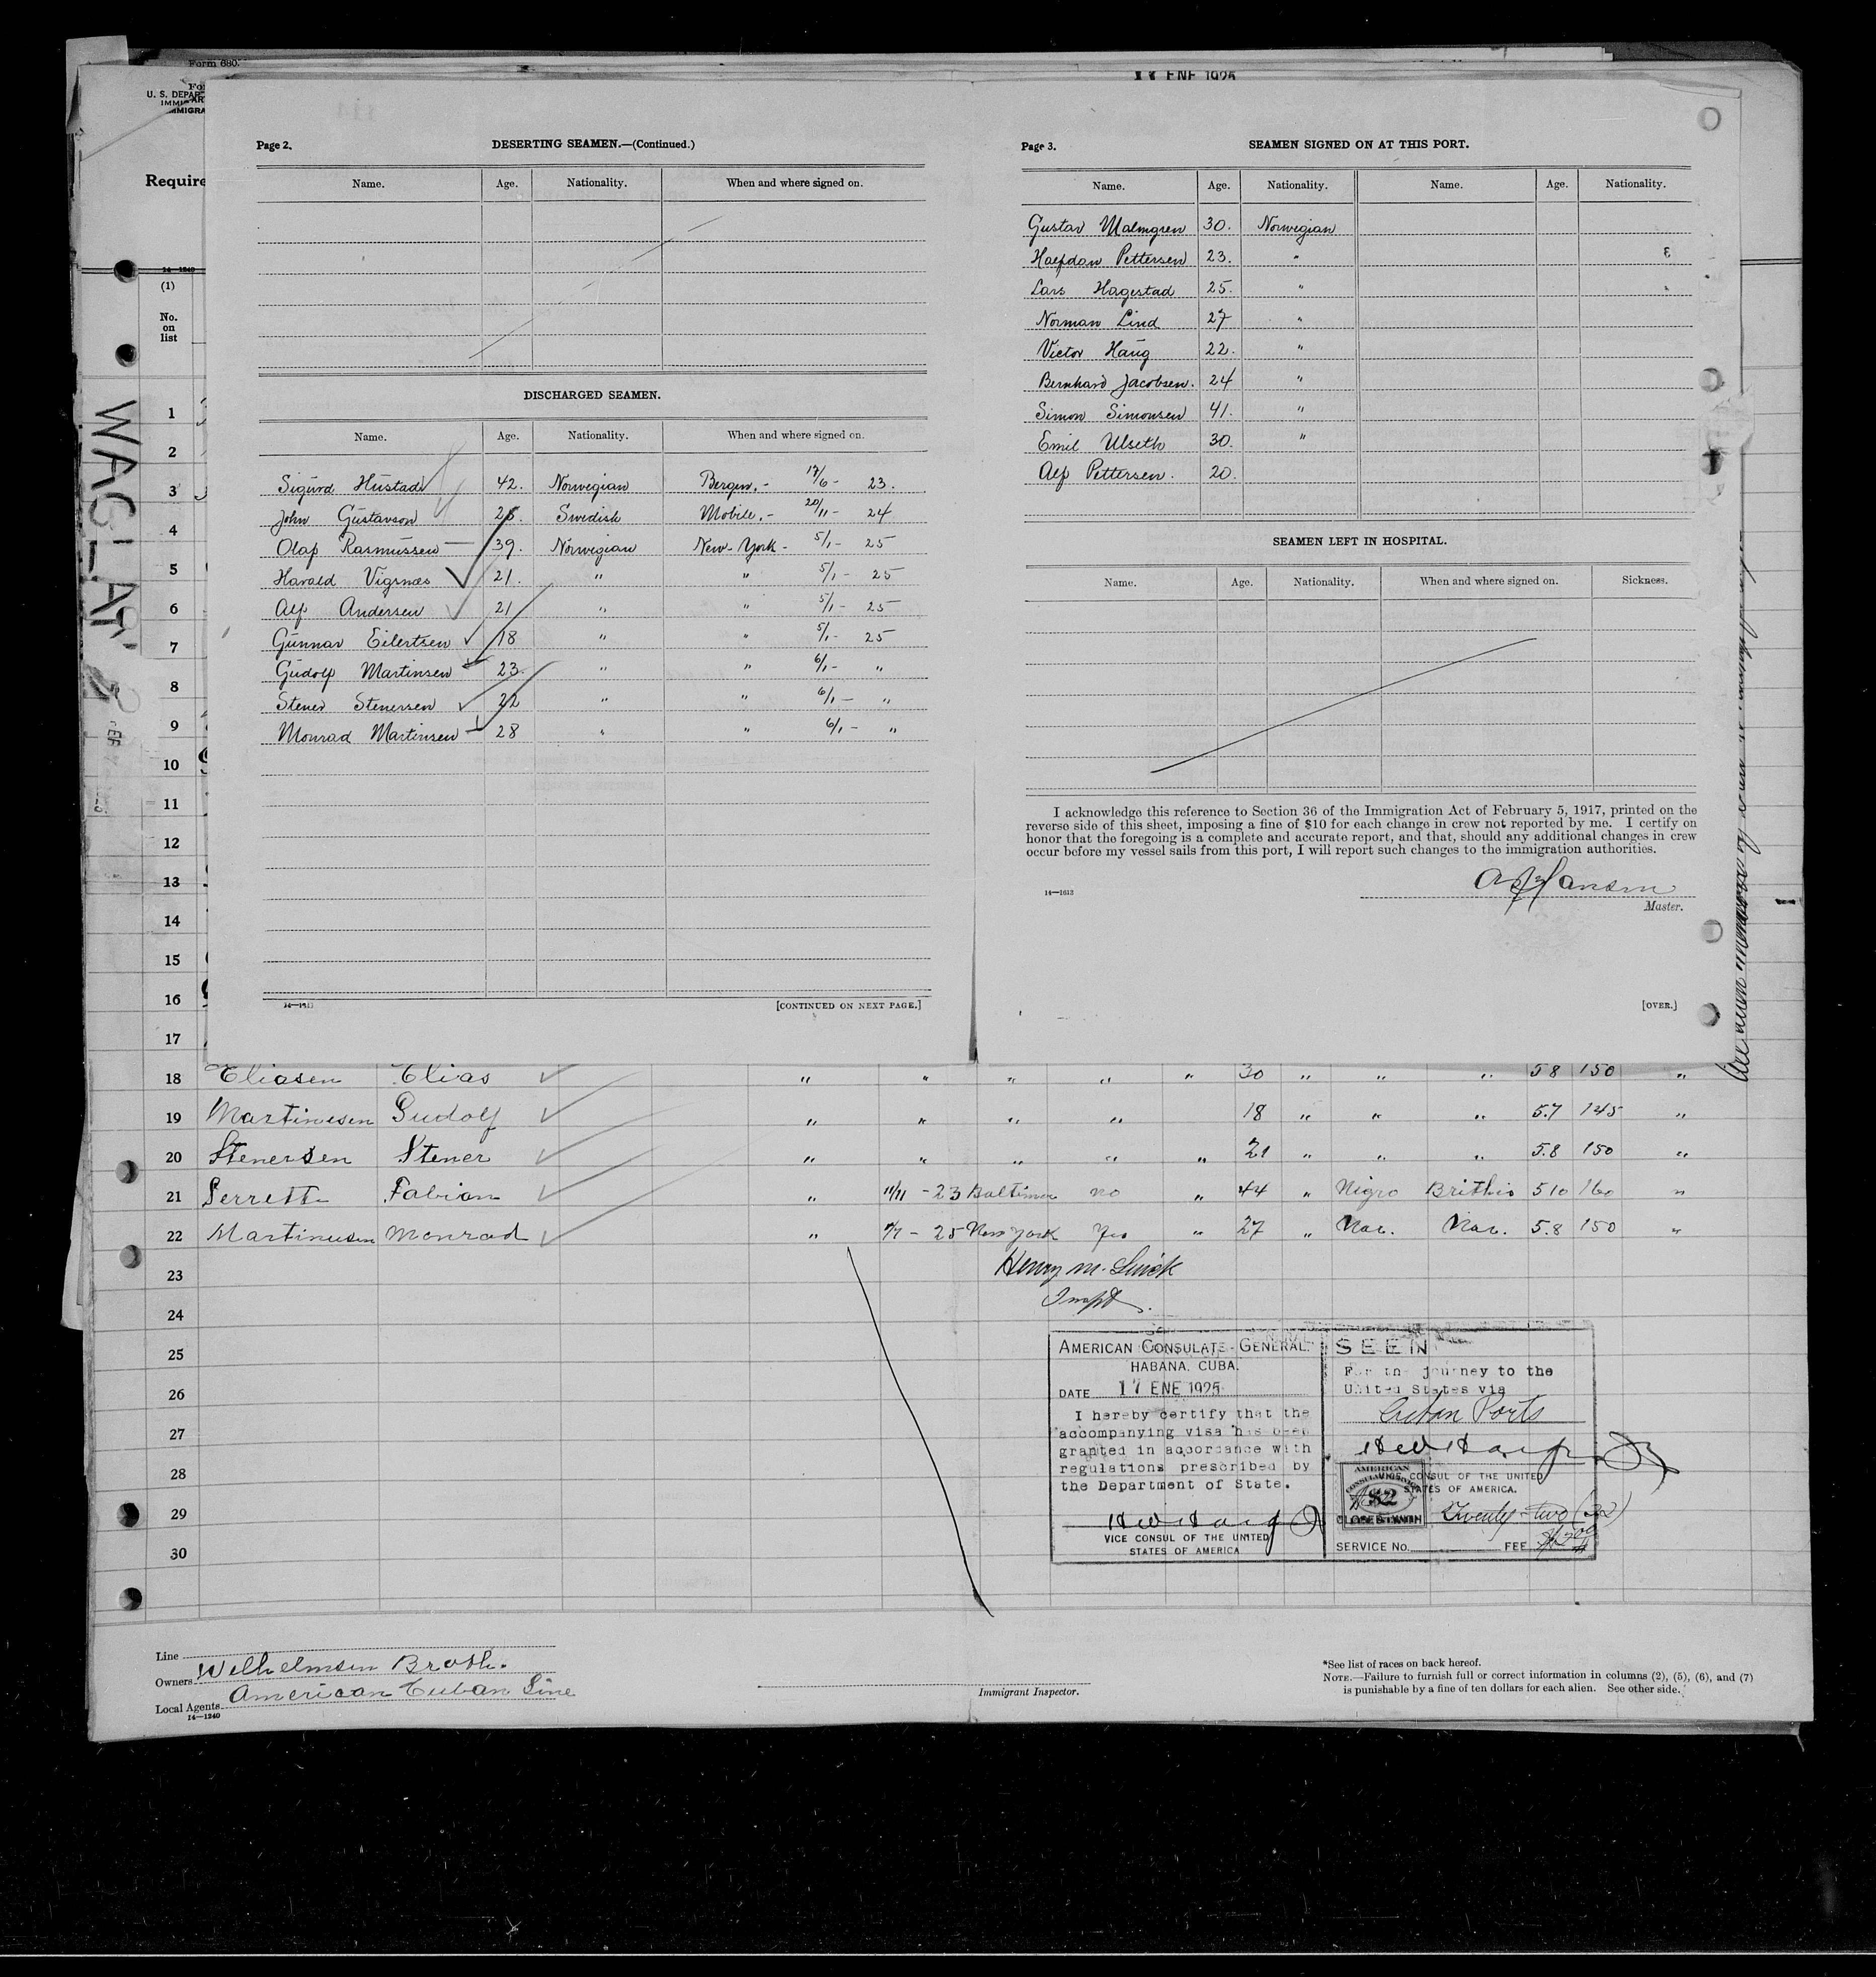 17 ENE 1925
Form 680.
U. S. DEPAR
IMMIGRA
Require
14—1240
(1)
No.
on
list
WAGLAND
Page 2.
DESERTING SEAMEN.—(Continued.)
Name. Age. Nationality. When and where signed on.
DISCHARGED SEAMEN.
Name. Age. Nationality. When and where signed on.
Sigurd Hustad 42. Norwegian Bergen.- 17/6 - 23.
John Gustavson 25. Swedish Mobile.- 20/11 - 24
Olaf Rasmussen 39. Norwegian New-York - 5/1 - 25
Harald Vigsnæs 21. " " 5/1 - 25
Alf Andersen 21 " " 5/1 - 25
Gunnar Eilertsen 18 " " 5/1 - 25
Gudolf Martinsen 23. " " 6/1 - "
Stener Stenersen 22 " " 6/1 - "
Monrad Martinsen 28 " " 6/1 - "
[CONTINUED ON NEXT PAGE.]
Page 3.
SEAMEN SIGNED ON AT THIS PORT.
Name. Age. Nationality. Name. Age. Nationality.
Gustav Malmgren 30. Norwegian
Halfdan Pettersen 23. "
Lars Hagestad 25. "
Norman Lind 27 "
Victor Haug 22. "
Bernhard Jacobsen. 24 "
Simon Simonsen 41. "
Emil Ulseth 30. "
Alf Pettersen. 20.
SEAMEN LEFT IN HOSPITAL.
Name. Age. Nationality. When and where signed on. Sickness.
I acknowledge this reference to Section 36 of the Immigration Act of February 5, 1917, printed on the
reverse side of this sheet, imposing a fine of $10 for each change in crew not reported by me. I certify on
honor that the foregoing is a complete and accurate report, and that, should any additional changes in crew
occur before my vessel sails from this port, I will report such changes to the immigration authorities.
14—1613
Hansen
Master.
[OVER.]
1
2
3
4
5
6
7
8
9
10
11
12
13
14
15
16
17
18 Eliasen Elias " " " " " 30 " " " 5 8 150 "
19 Martinusen Gudolf " " " " 18 " " " 5.7 145 "
20 Stenersen Stener " " " " " 21 " " " 5.8 150 "
21 Perrett Fabian " 11/11 - 23 Baltimore no " 44 " Nigro Brithis 5 10 160 "
22 Martinusen Monrad " - 25 New York Yes " 27 " Nor. Nor. 5.8 150 "
23
24
25
26
27
28
29
30
Henry M.
Inspt.
AMERICAN CONSULATE-GENERAL.
HABANA, CUBA.
DATE 17 ENE 1925
I hereby certify that the
accompanying visa has been
granted in accordance with
regulations prescribed by
the Department of State.
VICE CONSUL OF THE UNITED
STATES OF AMERICA
SEEN
For the journey to the
United States via
Cuban Ports
VICE CONSUL OF THE UNITED
STATES OF AMERICA.
AMERICAN
$2
Twenty-two (22)
SERVICE No. FEE
Line
Owners Wilhelmsen Broth.
Local Agents American Cuban Line
14—1240
Immigrant Inspector.
*See list of races on back hereof.
NOTE.—Failure to furnish full or correct information in columns (2), (5), (6), and (7)
is punishable by a fine of ten dollars for each alien. See other side.